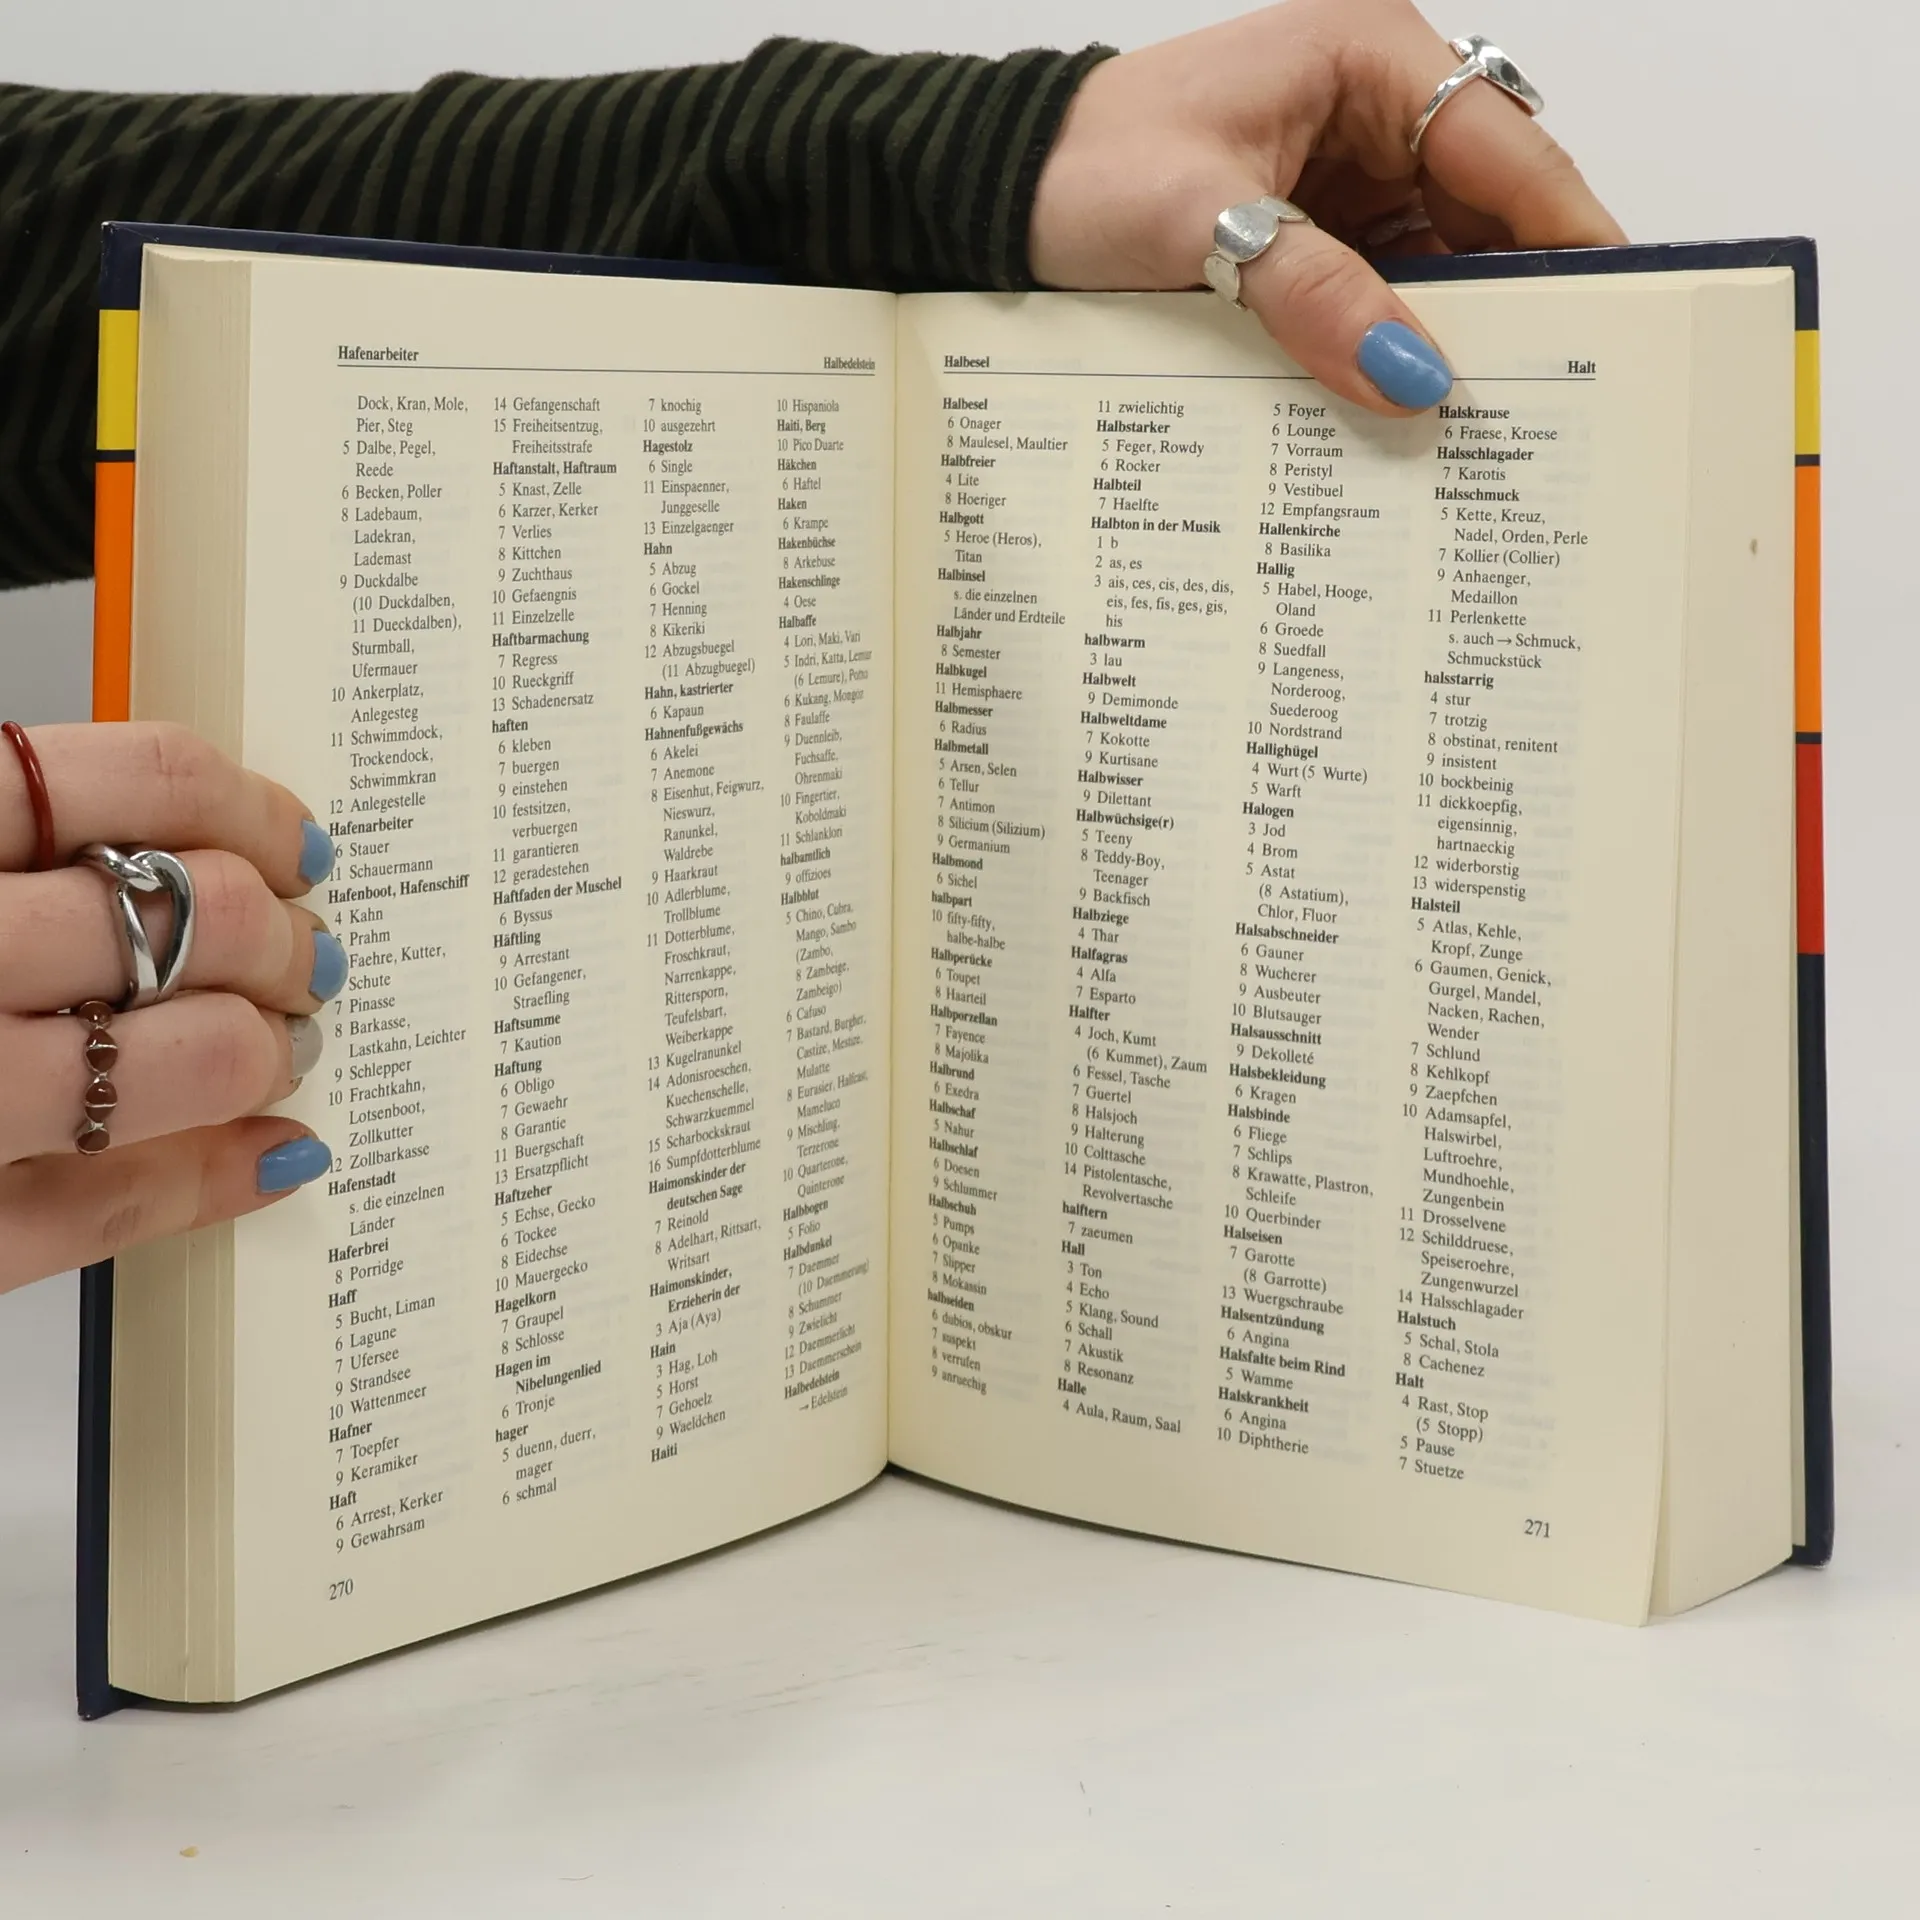 Hafenarbeiter
Halbedelstein
Dock, Kran, Mole,
Pier, Steg
5 Dalbe, Pegel,
Reede
6 Becken, Poller
8 Ladebaum,
Ladekran,
Lademast
9 Duckdalbe
(10 Duckdalben,
11 Dueckdalben),
Sturmball,
Ufermauer
10 Ankerplatz,
Anlegesteg
11 Schwimmdock,
Trockendock,
Schwimmkran
12 Anlegestelle
Hafenarbeiter
6 Stauer
11 Schauermann
Hafenboot, Hafenschiff
4 Kahn
5 Prahm
Faehre, Kutter,
Schute
7 Pinasse
8 Barkasse,
Lastkahn, Leichter
9 Schlepper
10 Frachtkahn,
Lotsenboot,
Zollkutter
12 Zollbarkasse
Hafenstadt
s. die einzelnen
Länder
Haferbrei
8 Porridge
Haff
5 Bucht, Liman
6 Lagune
7 Ufersee
9 Strandsee
10 Wattenmeer
Hafner
7 Toepfer
9 Keramiker
Haft
6 Arrest, Kerker
9 Gewahrsam
14 Gefangenschaft
15 Freiheitsentzug,
Freiheitsstrafe
Haftanstalt, Haftraum
5 Knast, Zelle
6 Karzer, Kerker
7 Verlies
8 Kittchen
9 Zuchthaus
10 Gefaengnis
11 Einzelzelle
Haftbarmachung
7 Regress
10 Rueckgriff
13 Schadenersatz
haften
6 kleben
7 buergen
9 einstehen
10 festsitzen,
verbuergen
11 garantieren
12 geradestehen
Haftfaden der Muschel
6 Byssus
Häftling
9 Arrestant
10 Gefangener,
Straefling
Haftsumme
7 Kaution
Haftung
6 Obligo
7 Gewaehr
8 Garantie
11 Buergschaft
13 Ersatzpflicht
Haftzeher
5 Echse, Gecko
6 Tockee
8 Eidechse
10 Mauergecko
Hagelkorn
7 Graupel
8 Schlosse
Hagen im
Nibelungenlied
6 Tronje
hager
5 duenn, duerr,
mager
6 schmal
7 knochig
10 ausgezehrt
Hagestolz
6 Single
11 Einspaenner,
Junggeselle
13 Einzelgaenger
Hahn
5 Abzug
6 Gockel
7 Henning
8 Kikeriki
12 Abzugsbuegel
(11 Abzugbuegel)
Hahn, kastrierter
6 Kapaun
Hahnenfußgewächs
6 Akelei
7 Anemone
8 Eisenhut, Feigwurz,
Nieswurz,
Ranunkel,
Waldrebe
9 Haarkraut
10 Adlerblume,
Trollblume
11 Dotterblume,
Froschkraut,
Narrenkappe,
Rittersporn,
Teufelsbart,
Weiberkappe
13 Kugelranunkel
14 Adonisroeschen,
Kuechenschelle,
Schwarzkuemmel
15 Scharbockskraut
16 Sumpfdotterblume
Haimonskinder der
deutschen Sage
7 Reinold
8 Adelhart, Rittsart,
Writsart
Haimonskinder,
Erzieherin der
3 Aja (Aya)
Hain
3 Hag, Loh
5 Horst
7 Gehoelz
9 Waeldchen
Haiti
10 Hispaniola
Haiti, Berg
10 Pico Duarte
Häkchen
6 Haftel
Haken
6 Krampe
Hakenbüchse
8 Arkebuse
Hakenschlinge
4 Oese
Halbaffe
4 Lori, Maki, Vari
5 Indri, Katta, Lemur
(6 Lemure), Potto
6 Kukang, Mongoz
8 Faulaffe
9 Duennleib,
Fuchsaffe,
Ohrenmaki
10 Fingertier,
Koboldmaki
11 Schlanklori
halbamtlich
9 offizioes
Halbblut
5 Chino, Cubra,
Mango, Sambo
(Zambo,
8 Zambeige,
Zambeigo)
6 Cafuso
7 Bastard, Burgher,
Castize, Mestize,
Mulatte
8 Eurasier, Halfcast,
Mameluco
9 Mischling,
Terzerone
10 Quarterone,
Quinterone
Halbbogen
5 Folio
Halbdunkel
7 Daemmer
(10 Daemmerung)
8 Schummer
9 Zwielicht
12 Daemmerlicht
13 Daemmerschein
Halbedelstein
→ Edelstein
270
Halbesel
Halt
Halbesel
6 Onager
8 Maulesel, Maultier
Halbfreier
4 Lite
8 Hoeriger
Halbgott
5 Heroe (Heros),
Titan
Halbinsel
s. die einzelnen
Länder und Erdteile
Halbjahr
8 Semester
Halbkugel
11 Hemisphaere
Halbmesser
6 Radius
Halbmetall
5 Arsen, Selen
6 Tellur
7 Antimon
8 Silicium (Silizium)
9 Germanium
Halbmond
6 Sichel
halbpart
10 fifty-fifty,
halbe-halbe
Halbperücke
6 Toupet
8 Haarteil
Halbporzellan
7 Fayence
8 Majolika
Halbrund
6 Exedra
Halbschaf
5 Nahur
Halbschlaf
6 Doesen
9 Schlummer
Halbschuh
5 Pumps
6 Opanke
7 Slipper
8 Mokassin
halbseiden
6 dubios, obskur
7 suspekt
8 verrufen
9 anruechig
11 zwielichtig
Halbstarker
5 Feger, Rowdy
6 Rocker
Halbteil
7 Haelfte
Halbton in der Musik
1 b
2 as, es
3 ais, ces, cis, des, dis,
eis, fes, fis, ges, gis,
his
halbwarm
3 lau
Halbwelt
9 Demimonde
Halbweltdame
7 Kokotte
9 Kurtisane
Halbwisser
9 Dilettant
Halbwüchsige(r)
5 Teeny
8 Teddy-Boy,
Teenager
9 Backfisch
Halbziege
4 Thar
Halfagras
4 Alfa
7 Esparto
Halfter
4 Joch, Kumt
(6 Kummet), Zaum
6 Fessel, Tasche
7 Guertel
8 Halsjoch
9 Halterung
10 Colttasche
14 Pistolentasche,
Revolvertasche
halftern
7 zaeumen
Hall
3 Ton
4 Echo
5 Klang, Sound
6 Schall
7 Akustik
8 Resonanz
Halle
4 Aula, Raum, Saal
5 Foyer
6 Lounge
7 Vorraum
8 Peristyl
9 Vestibuel
12 Empfangsraum
Hallenkirche
8 Basilika
Hallig
5 Habel, Hooge,
Oland
6 Groede
8 Suedfall
9 Langeness,
Norderoog,
Suederoog
10 Nordstrand
Hallighügel
4 Wurt (5 Wurte)
5 Warft
Halogen
3 Jod
4 Brom
5 Astat
(8 Astatium),
Chlor, Fluor
Halsabschneider
6 Gauner
8 Wucherer
9 Ausbeuter
10 Blutsauger
Halsausschnitt
9 Dekolleté
Halsbekleidung
6 Kragen
Halsbinde
6 Fliege
7 Schlips
8 Krawatte, Plastron,
Schleife
10 Querbinder
Halseisen
7 Garotte
(8 Garrotte)
13 Wuergschraube
Halsentzündung
6 Angina
Halsfalte beim Rind
5 Wamme
Halskrankheit
6 Angina
10 Diphtherie
Halskrause
6 Fraese, Kroese
Halsschlagader
7 Karotis
Halsschmuck
5 Kette, Kreuz,
Nadel, Orden, Perle
7 Kollier (Collier)
9 Anhaenger,
Medaillon
11 Perlenkette
s. auch → Schmuck,
Schmuckstück
halsstarrig
4 stur
7 trotzig
8 obstinat, renitent
9 insistent
10 bockbeinig
11 dickkoepfig,
eigensinnig,
hartnaeckig
12 widerborstig
13 widerspenstig
Halsteil
5 Atlas, Kehle,
Kropf, Zunge
6 Gaumen, Genick,
Gurgel, Mandel,
Nacken, Rachen,
Wender
7 Schlund
8 Kehlkopf
9 Zaepfchen
10 Adamsapfel,
Halswirbel,
Luftroehre,
Mundhoehle,
Zungenbein
11 Drosselvene
12 Schilddruese,
Speiseroehre,
Zungenwurzel
14 Halsschlagader
Halstuch
5 Schal, Stola
8 Cachenez
Halt
4 Rast, Stop
(5 Stopp)
5 Pause
7 Stuetze
271